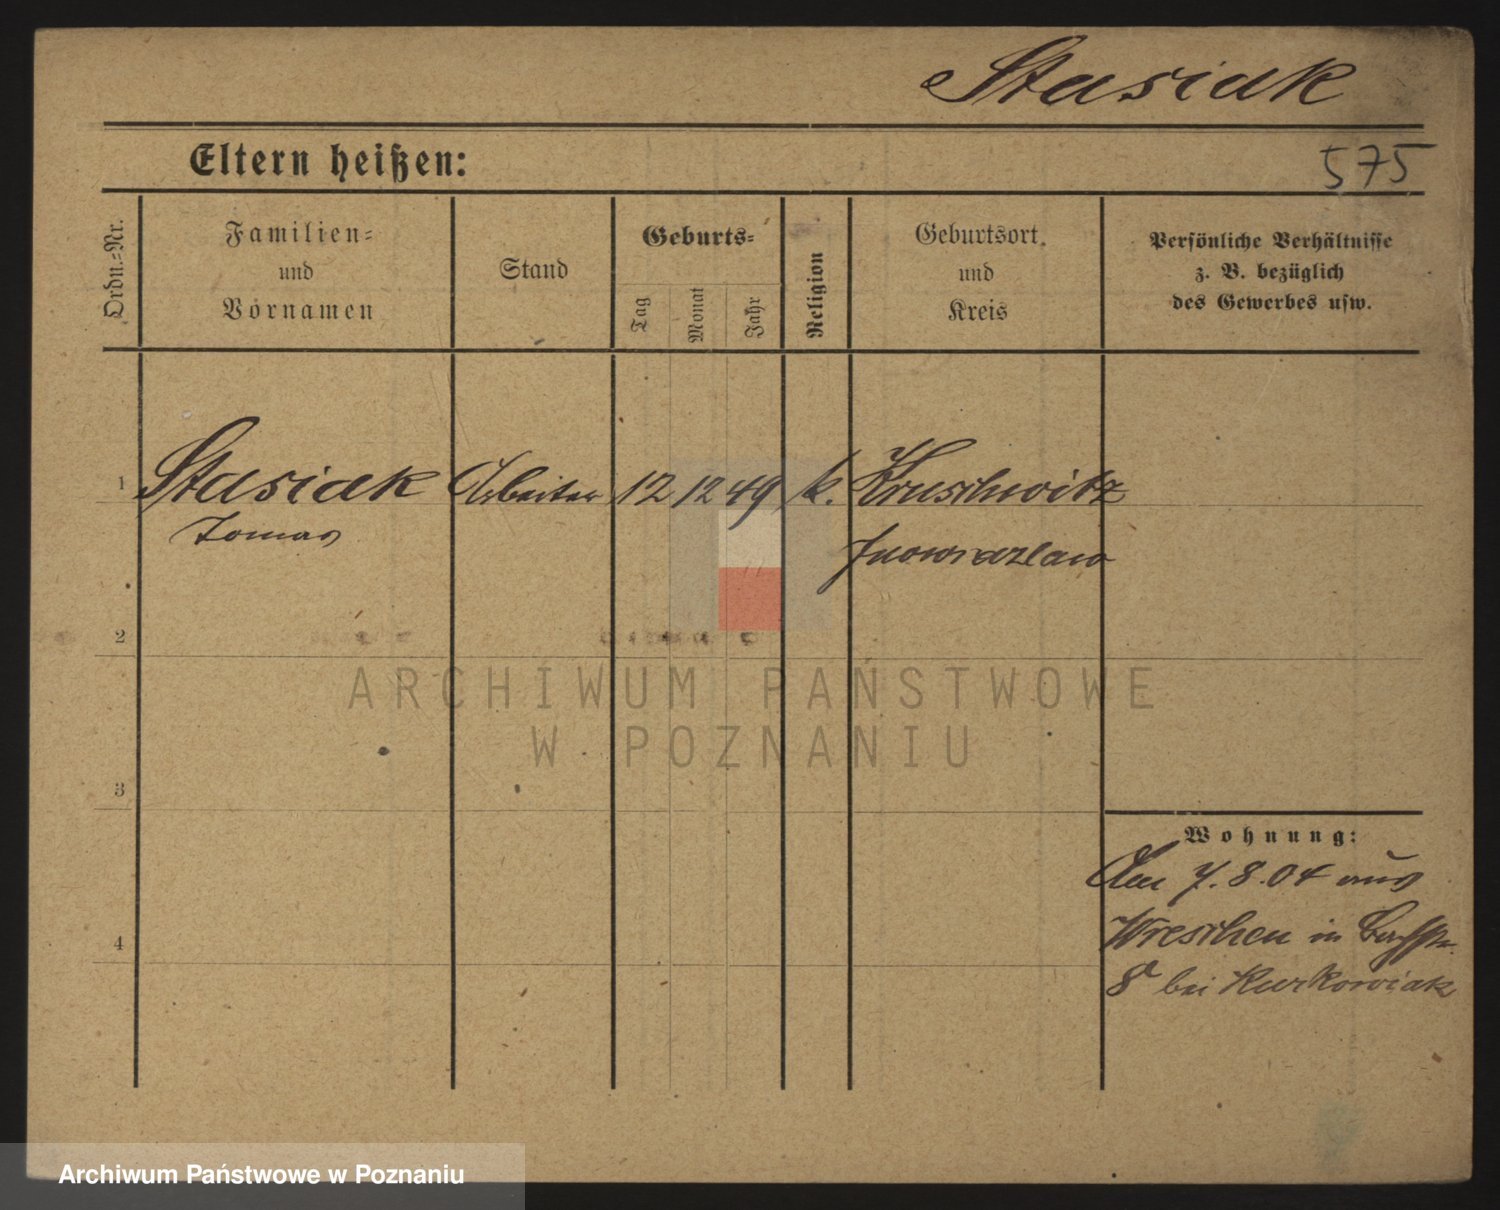 Stasiak
Eltern heißen:
575
Ordn.-Nr.
Familien-
und
Vornamen
Stand
Geburts-
Tag
Monat
Jahr
Religion
Geburtsort
und
Kreis
Persönliche Verhältnisse
z. B. bezüglich
des Gewerbes usw.
1 Stasiak Arbeiter 12 12 49 k. Kruschwitz
Tomas
Inowrazlaw
2
ARCHIWUM PAŃSTWOWE
W POZNANIU
3
Wohnung:
Am 7.8.04 aus
Wreschen in
4
8 bei Kurkowiak
Archiwum Państwowe w Poznaniu